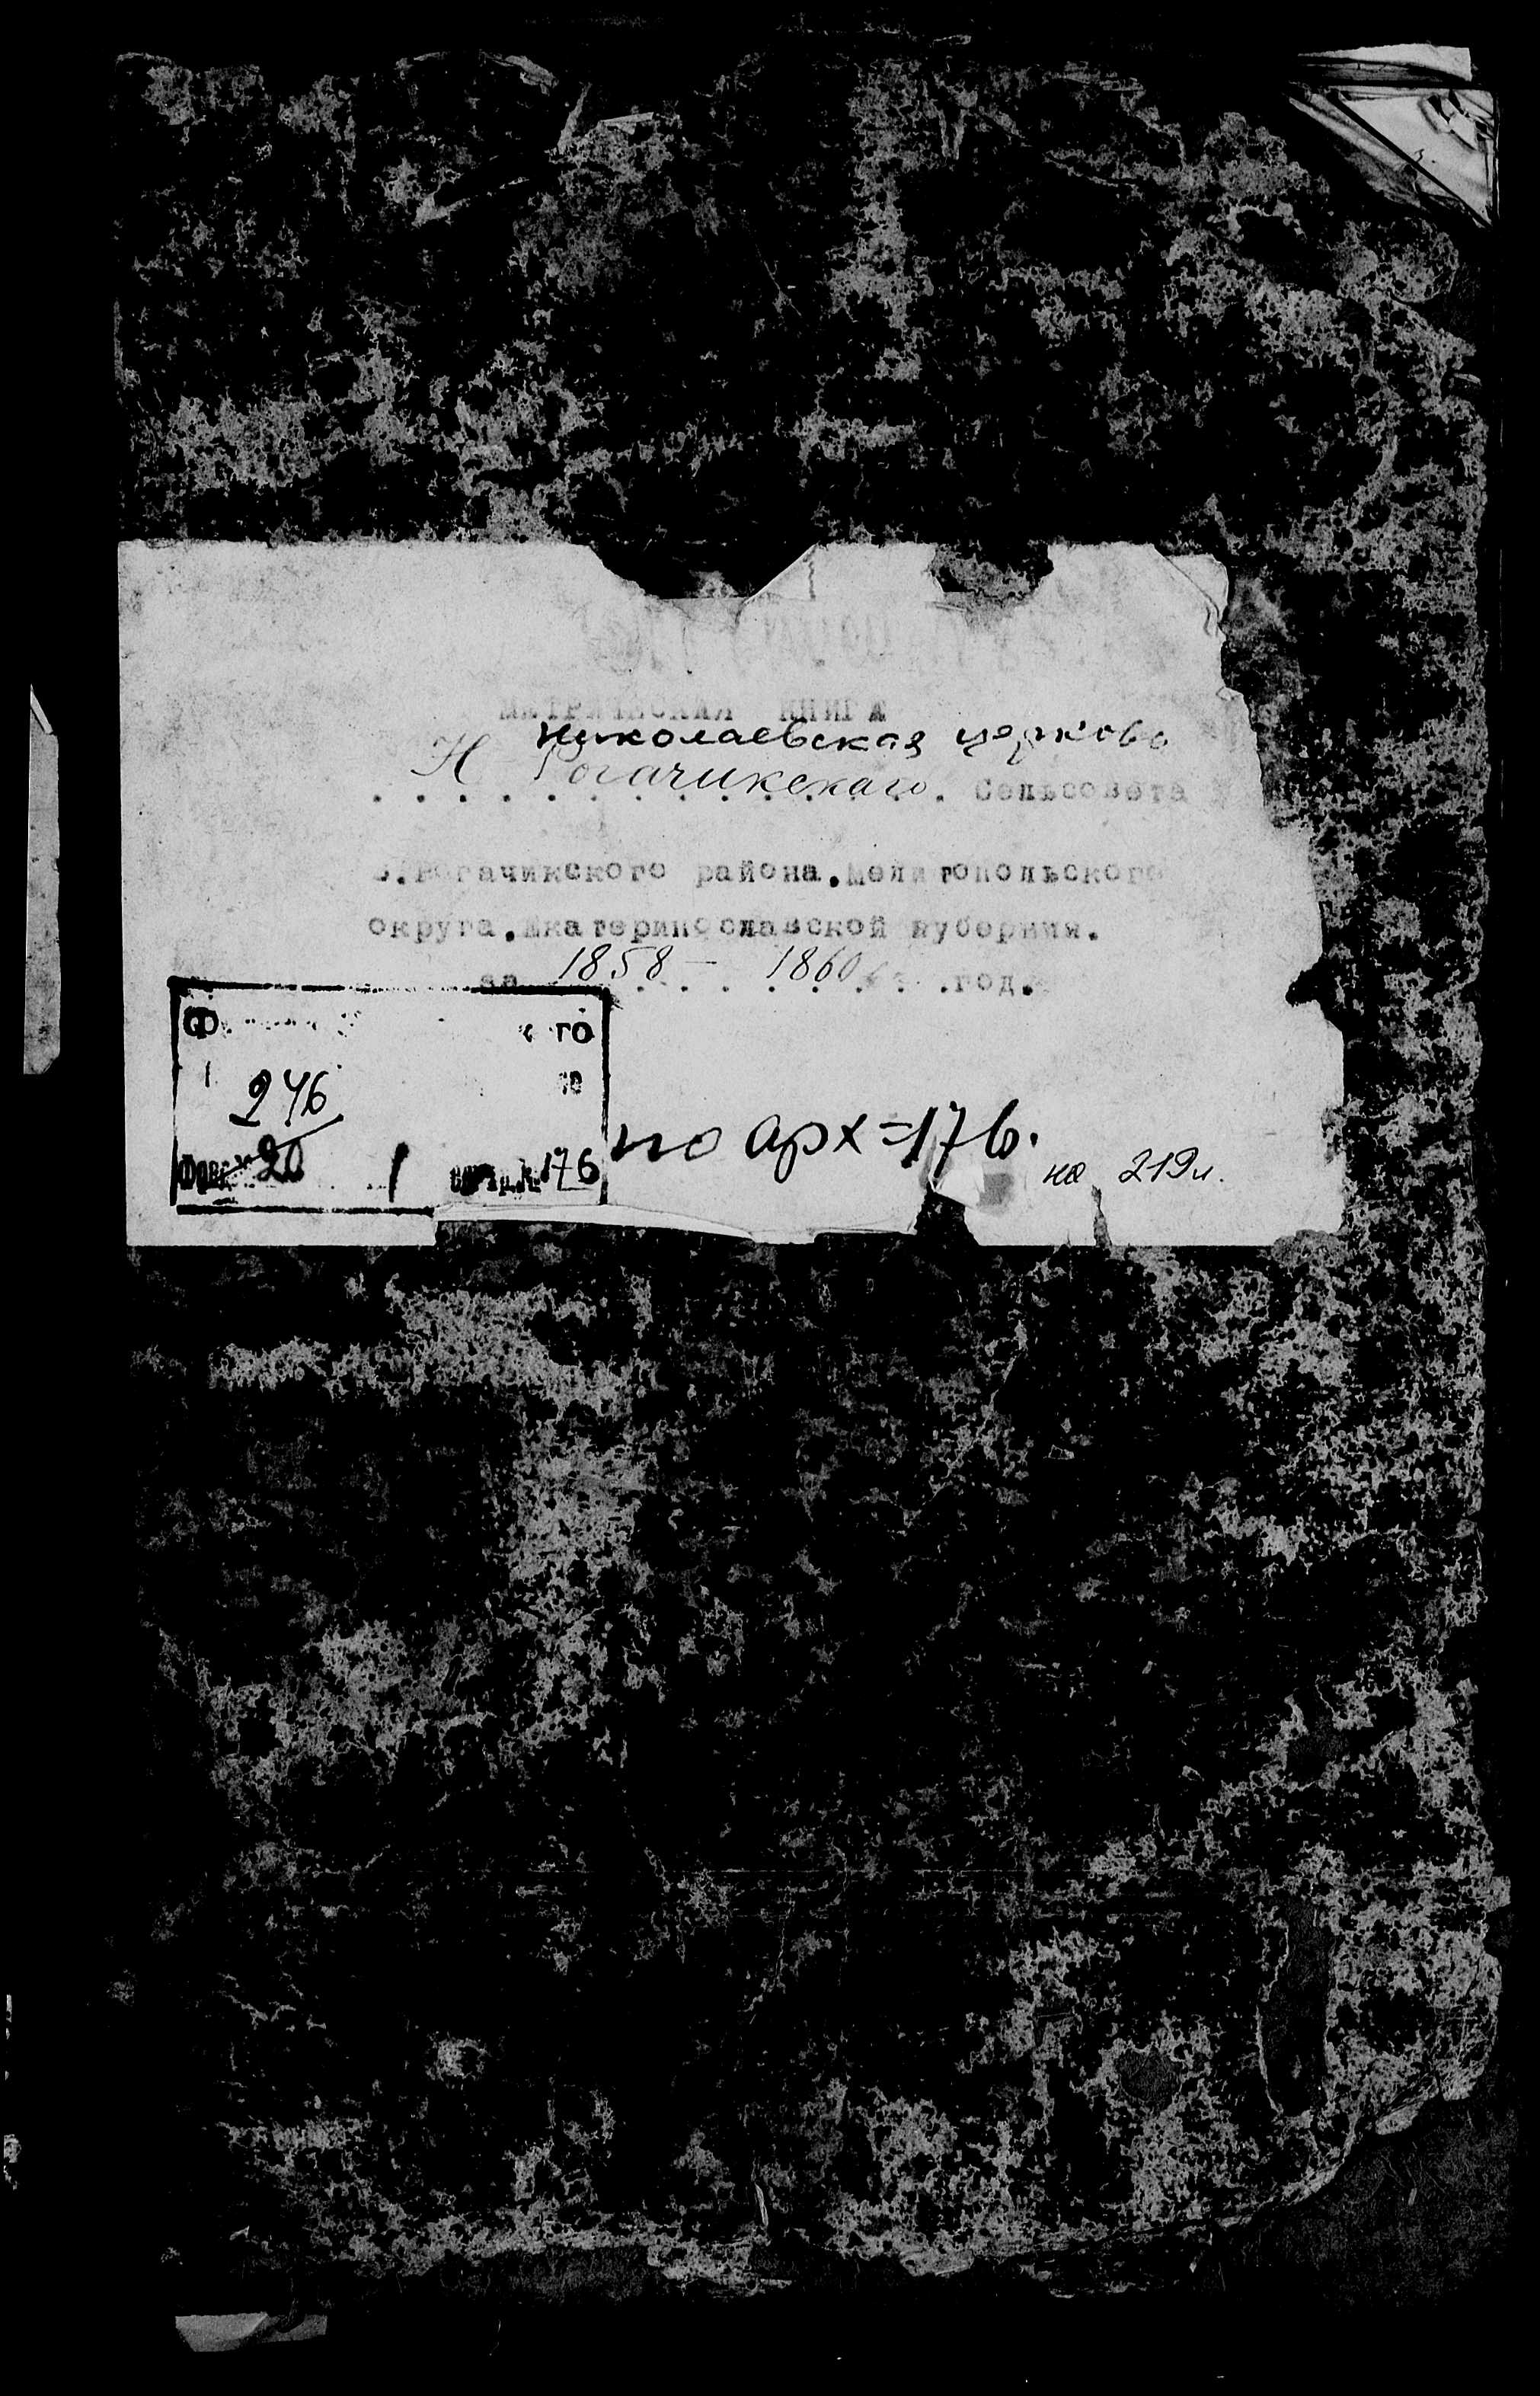 МЕТРИЧЕСКАЯ КНИГА
николаевская церковь
Н Рогачикскаго. Сельсовета
В.Рогачикского района.Мелитопольского
округа.Екатеринославской губернии.
за 1858 - 1860 год.
Ф го
246
20 1 176
по арх=176.
на 219л.